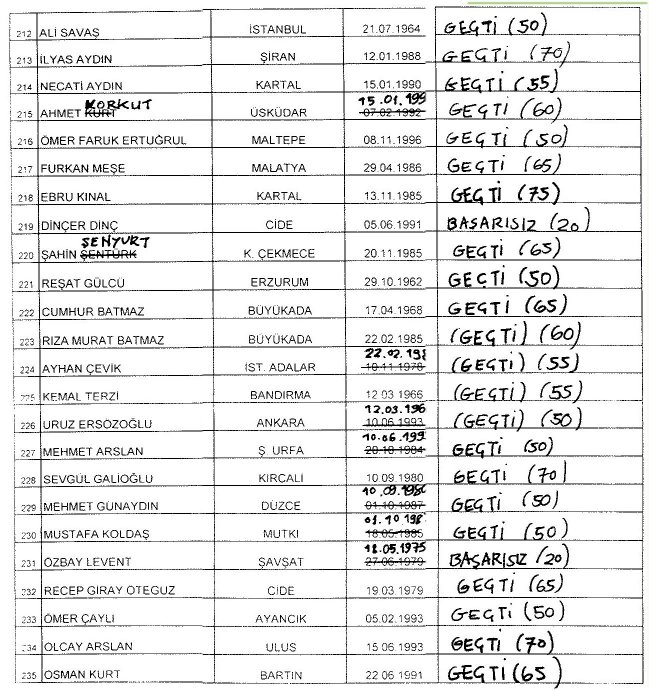 212 ALİ SAVAŞ İSTANBUL 21.07.1964 GEÇTİ (50)
213 İLYAS AYDIN ŞİRAN 12.01.1988 GEÇTİ (70)
214 NECATİ AYDIN KARTAL 15.01.1990 GEÇTİ (55)
KORKUT 15.01.199
215 AHMET KURT ÜSKÜDAR 07.02.1992 GEÇTİ (60)
216 ÖMER FARUK ERTUĞRUL MALTEPE 08.11.1996 GEÇTİ (50)
217 FURKAN MEŞE MALATYA 29.04.1986 GEÇTİ (65)
218 EBRU KINAL KARTAL 13.11.1985 GEÇTİ (75)
219 DİNÇER DİNÇ CİDE 05.06.1991 BAŞARISIZ (20)
ŞENYURT
220 ŞAHİN ŞENTÜRK K. ÇEKMECE 20.11.1985 GEÇTİ (65)
221 REŞAT GÜLCÜ ERZURUM 29.10.1962 GEÇTİ (50)
222 CUMHUR BATMAZ BÜYÜKADA 17.04.1968 GEÇTİ (65)
223 RIZA MURAT BATMAZ BÜYÜKADA 22.02.1985 (GEÇTİ) (60)
22.02.198
224 AYHAN ÇEVİK İST. ADALAR 10.11.1978 (GEÇTİ) (55)
225 KEMAL TERZİ BANDIRMA 12 03 1966 (GEÇTİ) (55)
12.03.196
226 URUZ ERSÖZOĞLU ANKARA 10.06.1993 (GEÇTİ) (50)
10.06.199
227 MEHMET ARSLAN Ş. URFA 20.10.1984 GEÇTİ (50)
228 SEVGÜL GALİOĞLU KIRCALİ 10.09.1980 GEÇTİ (70)
10.09.198
229 MEHMET GÜNAYDIN DÜZCE 01.10.1987 GEÇTİ (50)
01.10.198
230 MUSTAFA KOLDAŞ MUTKİ 18.05.1985 GEÇTİ (50)
18.05.1975
231 ÖZBAY LEVENT ŞAVŞAT 27.06.1979 BAŞARISIZ (20)
232 RECEP GİRAY ÖTEGÜZ CİDE 19.03.1979 GEÇTİ (65)
233 ÖMER ÇAYLI AYANCIK 05.02.1993 GEÇTİ (50)
234 OLCAY ARSLAN ULUS 15.06.1993 GEÇTİ (70)
235 OSMAN KURT BARTIN 22 06 1991 GEÇTİ (65)